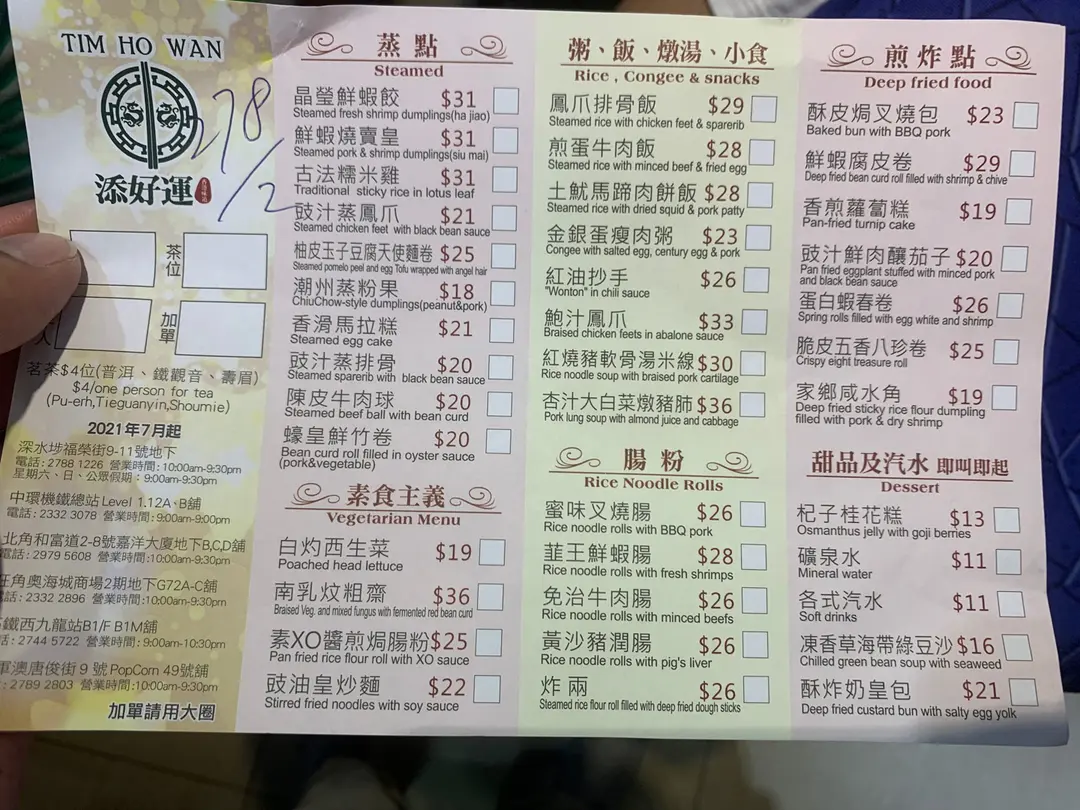 TIM HO WAN
添好運
278
/2
茶位
加單
人
茗茶$4位(普洱、鐵觀音、壽眉)
$4/one person for tea
(Pu-erh,Tieguanyin,Shoumie)
2021年7月起
深水埗福榮街9-11號地下
電話:2788 1226 營業時間:10:00am-9:30pm
星期六、日、公眾假期:9:00am-9:30pm
中環機鐵總站 Level 1.12A、B舖
電話:2332 3078 營業時間:9:00am-9:00pm
北角和富道2-8號嘉洋大廈地下B,C,D舖
電話:2979 5608 營業時間:10:00am-9:30pm
旺角奧海城商場2期地下G72A-C舖
:2332 2896 營業時間:10:00am-9:30pm
鐵西九龍站B1/F B1M舖
話:2744 5722 營業時間:9:00am-10:30pm
軍澳唐俊街9號PopCorn 49號舖
:2789 2803 營業時間:10:00am-9:30pm
加單請用大圈
蒸點
Steamed
晶瑩鮮蝦餃 $31
Steamed fresh shrimp dumplings(ha jiao)
鮮蝦燒賣皇 $31
Steamed pork & shrimp dumplings(siu mai)
古法糯米雞 $31
Traditional sticky rice in lotus leaf
豉汁蒸鳳爪 $21
Steamed chicken feet with black bean sauce
柚皮玉子豆腐天使麵卷 $25
Steamed pomelo peel and egg Tofu wrapped with angel hair
潮州蒸粉果 $18
ChiuChow-style dumplings(peanut&pork)
香滑馬拉糕 $21
Steamed egg cake
豉汁蒸排骨 $20
Steamed sparerib with black bean sauce
陳皮牛肉球 $20
Steamed beef ball with bean curd
蠔皇鮮竹卷 $20
Bean curd roll filled in oyster sauce
(pork&vegetable)
素食主義
Vegetarian Menu
白灼西生菜 $19
Poached head lettuce
南乳炆粗齋 $36
Braised Veg. and mixed fungus with fermented red bean curd
素XO醬煎焗腸粉 $25
Pan fried rice flour roll with XO sauce
豉油皇炒麵 $22
Stirred fried noodles with soy sauce
粥、飯、燉湯、小食
Rice , Congee & snacks
鳳爪排骨飯 $29
Steamed rice with chicken feet & sparerib
煎蛋牛肉飯 $28
Steamed rice with minced beef & fried egg
土魷馬蹄肉餅飯 $28
Steamed rice with dried squid & pork patty
金銀蛋瘦肉粥 $23
Congee with salted egg, century egg & pork
紅油抄手 $26
"Wonton" in chili sauce
鮑汁鳳爪 $33
Braised chicken feets in abalone sauce
紅燒豬軟骨湯米線 $30
Rice noodle soup with braised pork cartilage
杏汁大白菜燉豬肺 $36
Pork lung soup with almond juice and cabbage
腸粉
Rice Noodle Rolls
蜜味叉燒腸 $26
Rice noodle rolls with BBQ pork
韮王鮮蝦腸 $28
Rice noodle rolls with fresh shrimps
免治牛肉腸 $26
Rice noodle rolls with minced beefs
黃沙豬潤腸 $26
Rice noodle rolls with pig's liver
炸兩 $26
Steamed rice flour roll filled with deep fried dough sticks
煎炸點
Deep fried food
酥皮焗叉燒包 $23
Baked bun with BBQ pork
鮮蝦腐皮卷 $29
Deep fried bean curd roll filled with shrimp & chive
香煎蘿蔔糕 $19
Pan-fried turnip cake
豉汁鮮肉釀茄子 $20
Pan fried eggplant stuffed with minced pork
and black bean sauce
蛋白蝦春卷 $26
Spring rolls filled with egg white and shrimp
脆皮五香八珍卷 $25
Crispy eight treasure roll
家鄉咸水角 $19
Deep fried sticky rice flour dumpling
filled with pork & dry shrimp
甜品及汽水 即叫即起
Dessert
杞子桂花糕 $13
Osmanthus jelly with goji berries
礦泉水 $11
Mineral water
各式汽水 $11
Soft drinks
凍香草海帶綠豆沙 $16
Chilled green bean soup with seaweed
酥炸奶皇包 $21
Deep fried custard bun with salty egg yolk